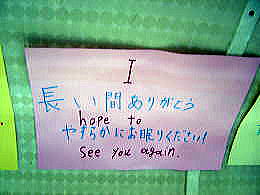 I
長い間ありがとう
hope to
やすらかにお眠りください!
see you again.